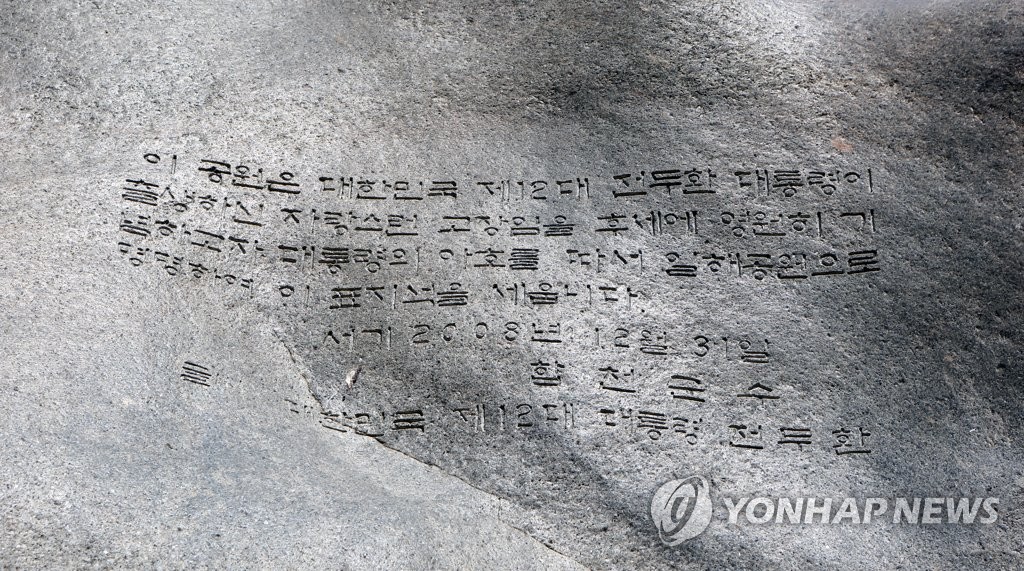 이 공원은 대한민국 제12대 전두환 대통령이
출생하신 자랑스런 고장임을 후세에 영원히 기
념하고자 대통령의 아호를 따서 일해공원으로
명명하여 이 표지석을 세웁니다.
서기 2008년 12월 31일
합천군수
글 대한민국 제12대 대통령 전두환
YONHAP NEWS